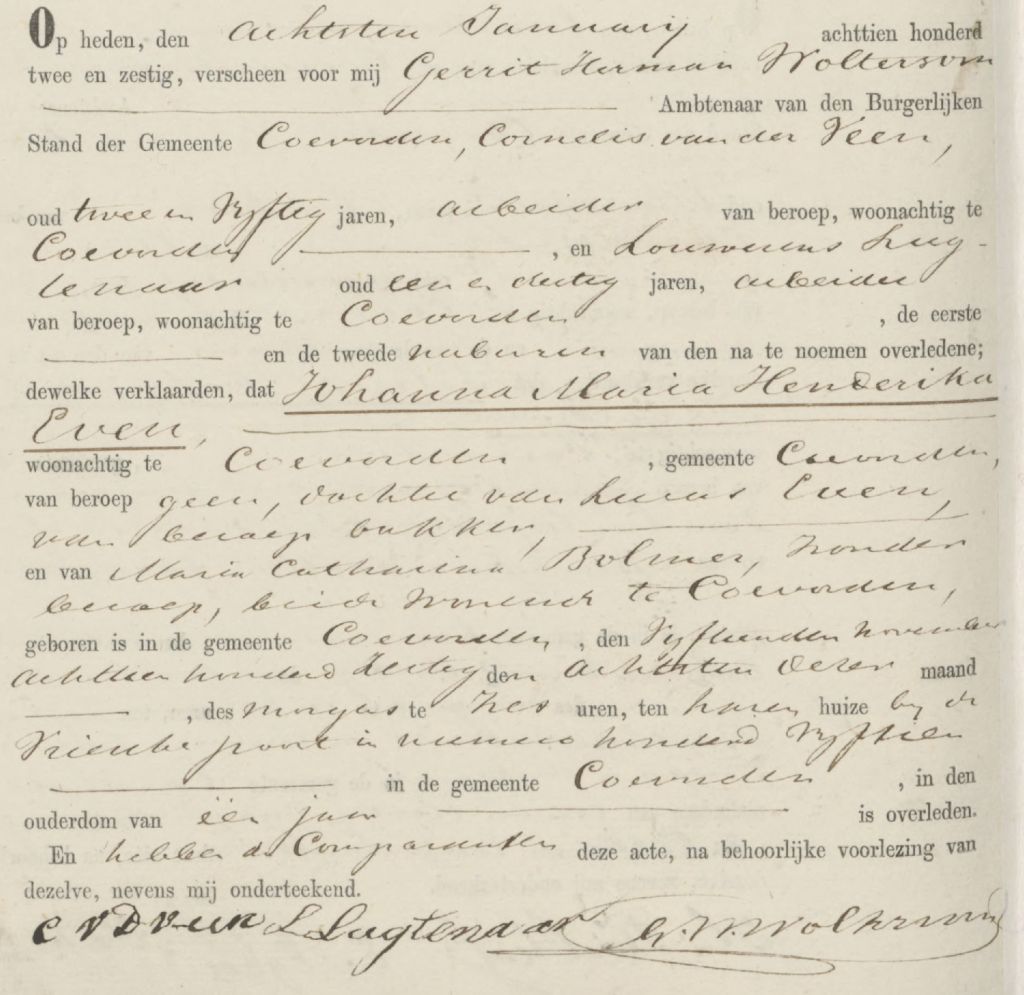 Op heden, den Achtsten January achttien honderd
twee en zestig, verscheen voor mij Gerrit Herman Woltersom
Ambtenaar van den Burgerlijken
Stand der Gemeente Coevorden, Cornelis van der Veen,
oud twee en Vyftig jaren, arbeider van beroep, woonachtig te
Coevorden, en Louwerens Lug-
tenaar oud een en dertig jaren, arbeider
van beroep, woonachtig te Coevorden, de eerste
en de tweede naburen van den na te noemen overledene;
dewelke verklaarden, dat Johanna Maria Henderika
Even,
woonachtig te Coevorden, gemeente Coevorden,
van beroep geen, dochter van Lucas Even,
van beroep bakker,
en van Maria Catharina Bolmer, zonder
beroep, beide wonende te Coevorden,
geboren is in de gemeente Coevorden, den Vyftienden november
Achttien honderd zestig den Achtsten dezer maand
, des morgens te Zes uren, ten haren huize by de
Vriesche poort in numero honderd Vyftien
in de gemeente Coevorden, in den
ouderdom van één jaar is overleden.
En hebben de Comparanten deze acte, na behoorlijke voorlezing van
dezelve, nevens mij onderteekend.
C V D Veen L Lugtenaar G. H. Woltersom